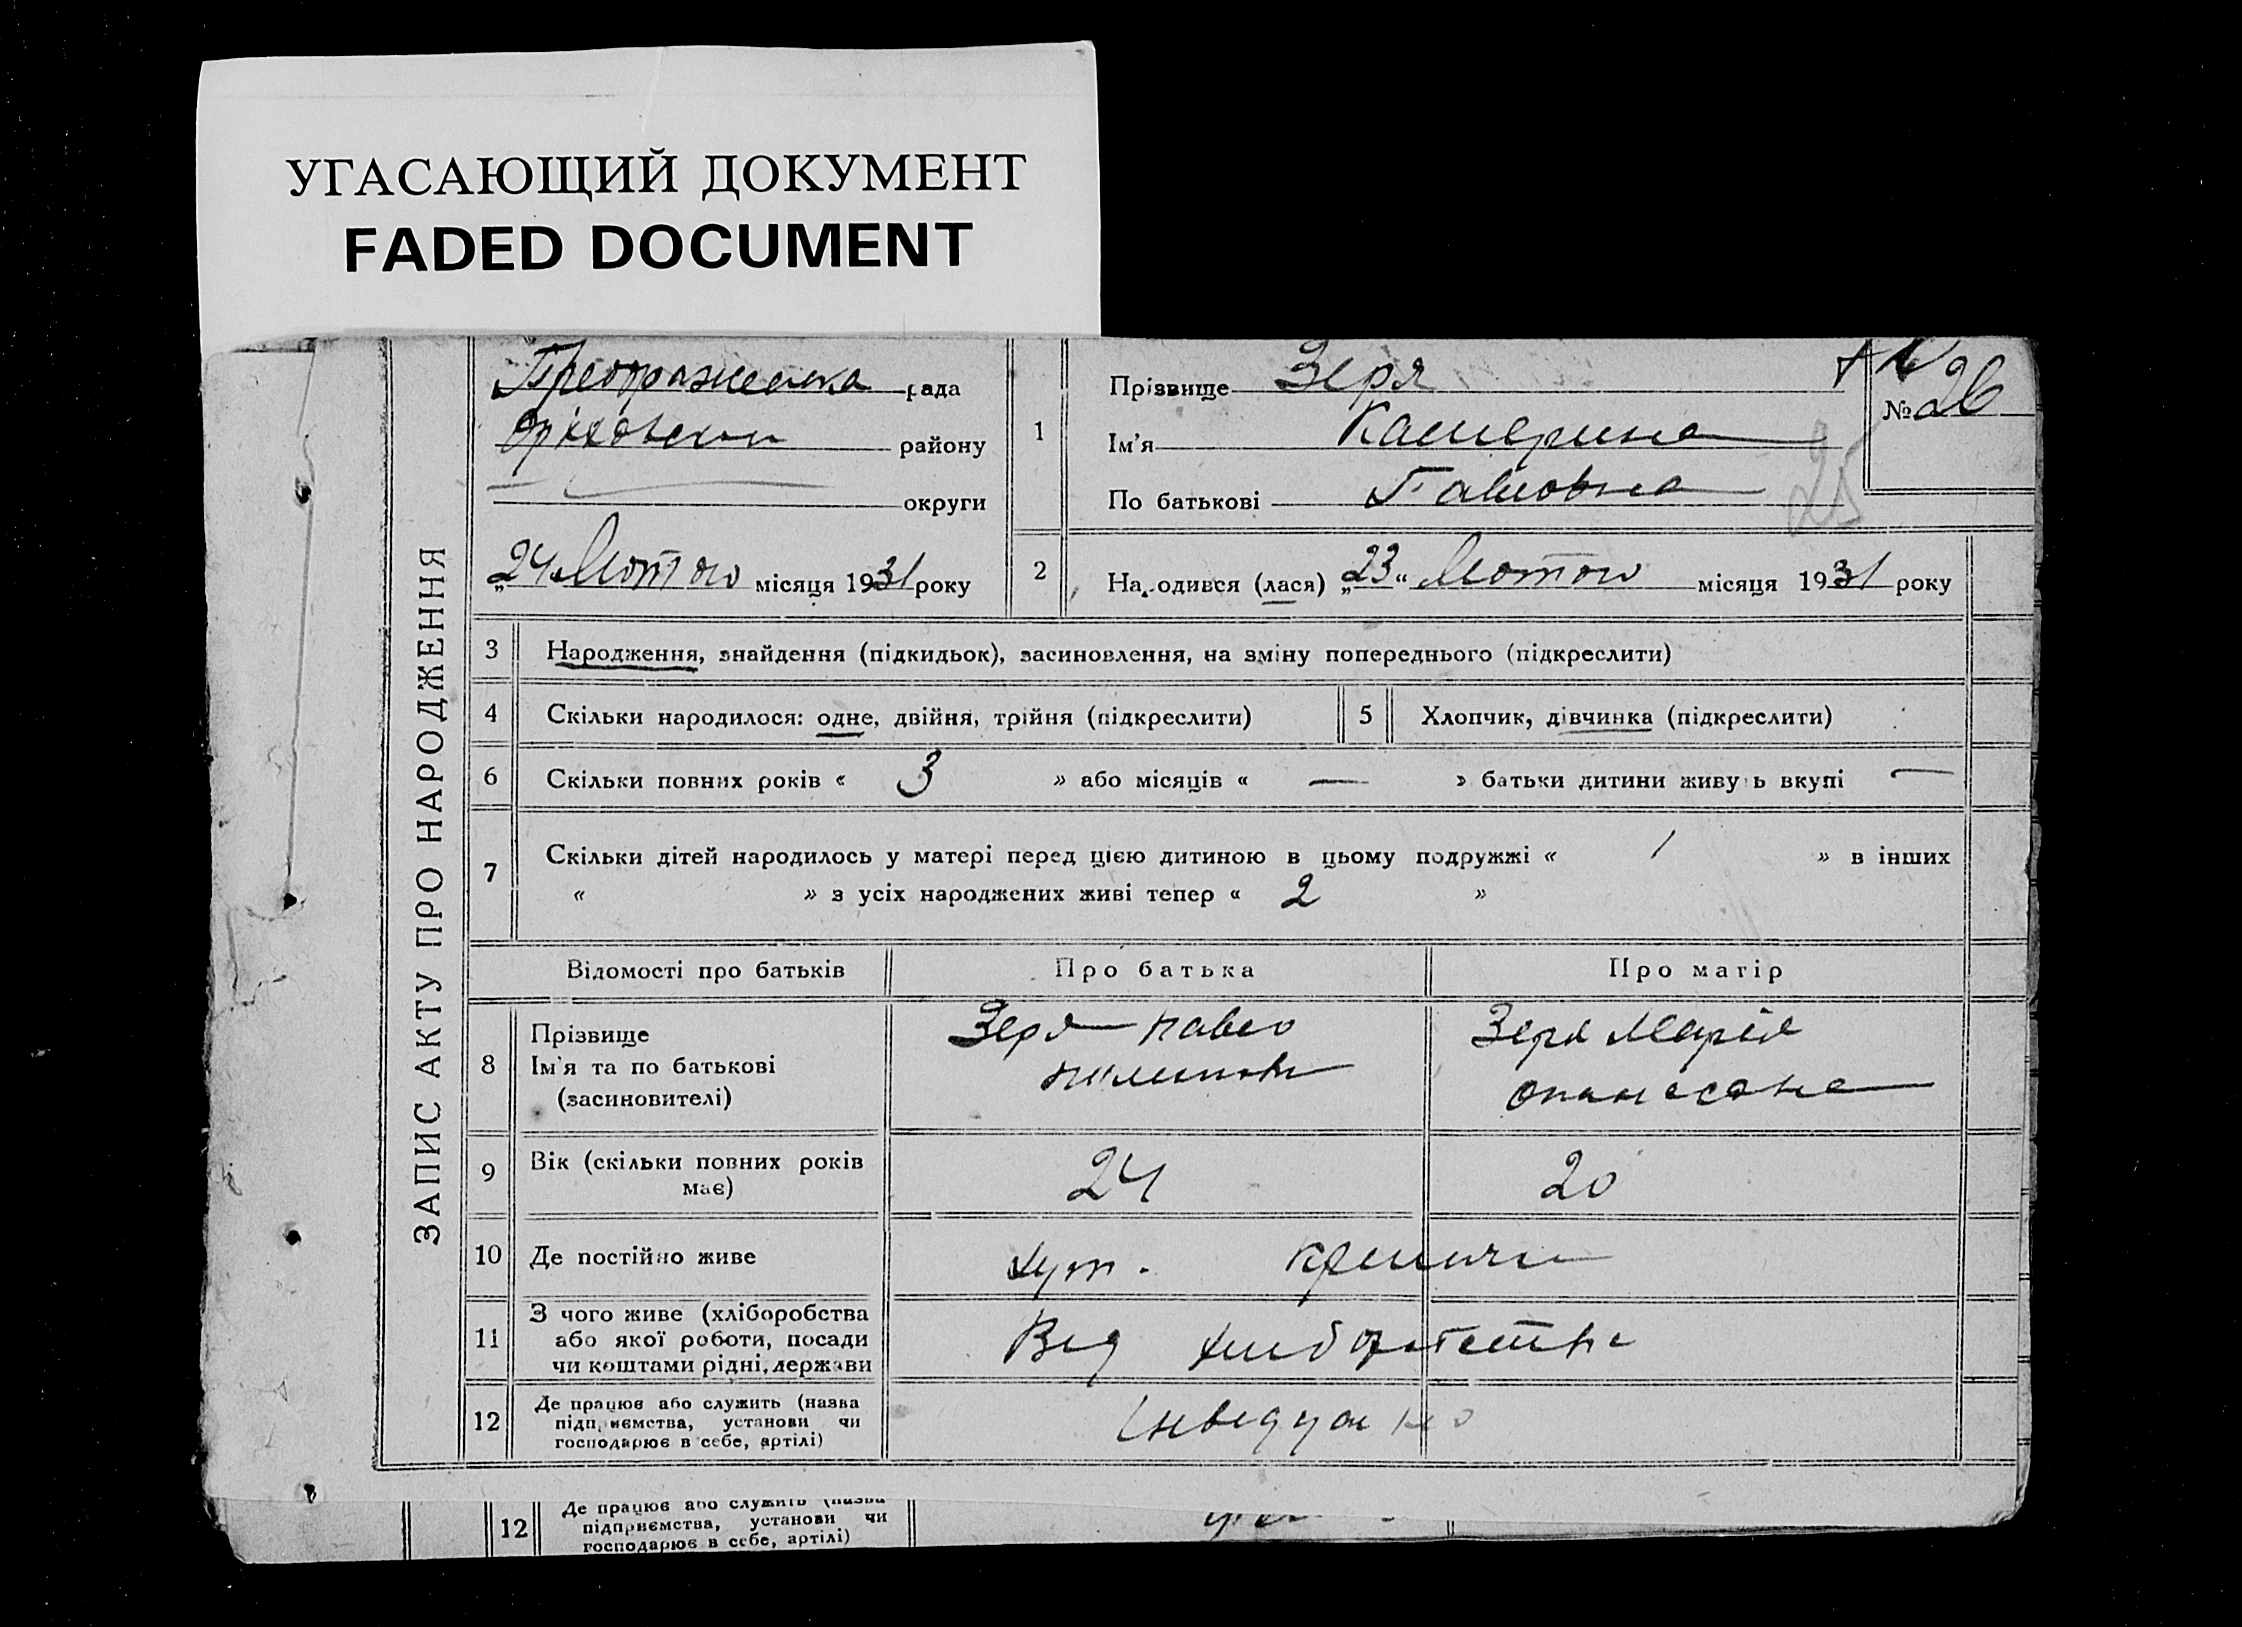 УГАСАЮЩИЙ ДОКУМЕНТ
FADED DOCUMENT
ЗАПИС АКТУ ПРО НАРОДЖЕННЯ
Преображенська рада
Оріховський району
округи
„24 Лютого місяця 1931 року
1 Прізвище Зеря
Ім'я Катерина
По батькові Павловна
№ 26
25
2 Народився (лася) „23“ Лютого місяця 1931 року
3 Народження, знайдення (підкидьок), засиновлення, на зміну попереднього (підкреслити)
4 Скільки народилося: одне, двійня, трійня (підкреслити)
5 Хлопчик, дівчинка (підкреслити)
6 Скільки повних років « 3 » або місяців « — » батьки дитини живуть вкупі —
7 Скільки дітей народилось у матері перед цією дитиною в цьому подружжі « 1 » в інших
« » з усіх народжених живі тепер « 2 »
Відомості про батьків Про батька Про матір
8 Прізвище
Ім'я та по батькові
(засиновителі)
Зеря Павло
Зеря Марія
9 Вік (скільки повних років
має)
24
20
10 Де постійно живе хут.
11 З чого живе (хліборобства
або якої роботи, посади
чи коштами рідні, держави
Від хліборобства
12 Де працює або служить (назва
підприємства, установи чи
господарює в себе, артілі)
12 Де працює або служить (назва
підприємства, установи чи
господарює в себе, артілі)